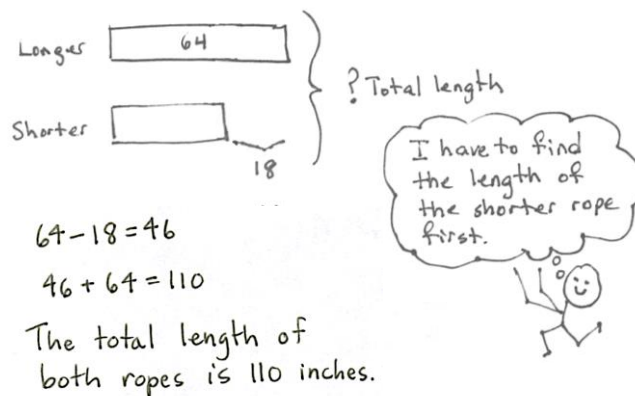 Longer 64
? Total length
Shorter
18
I have to find
the length of
the shorter rope
first.
64-18=46
46+64=110
The total length of
both ropes is 110 inches.